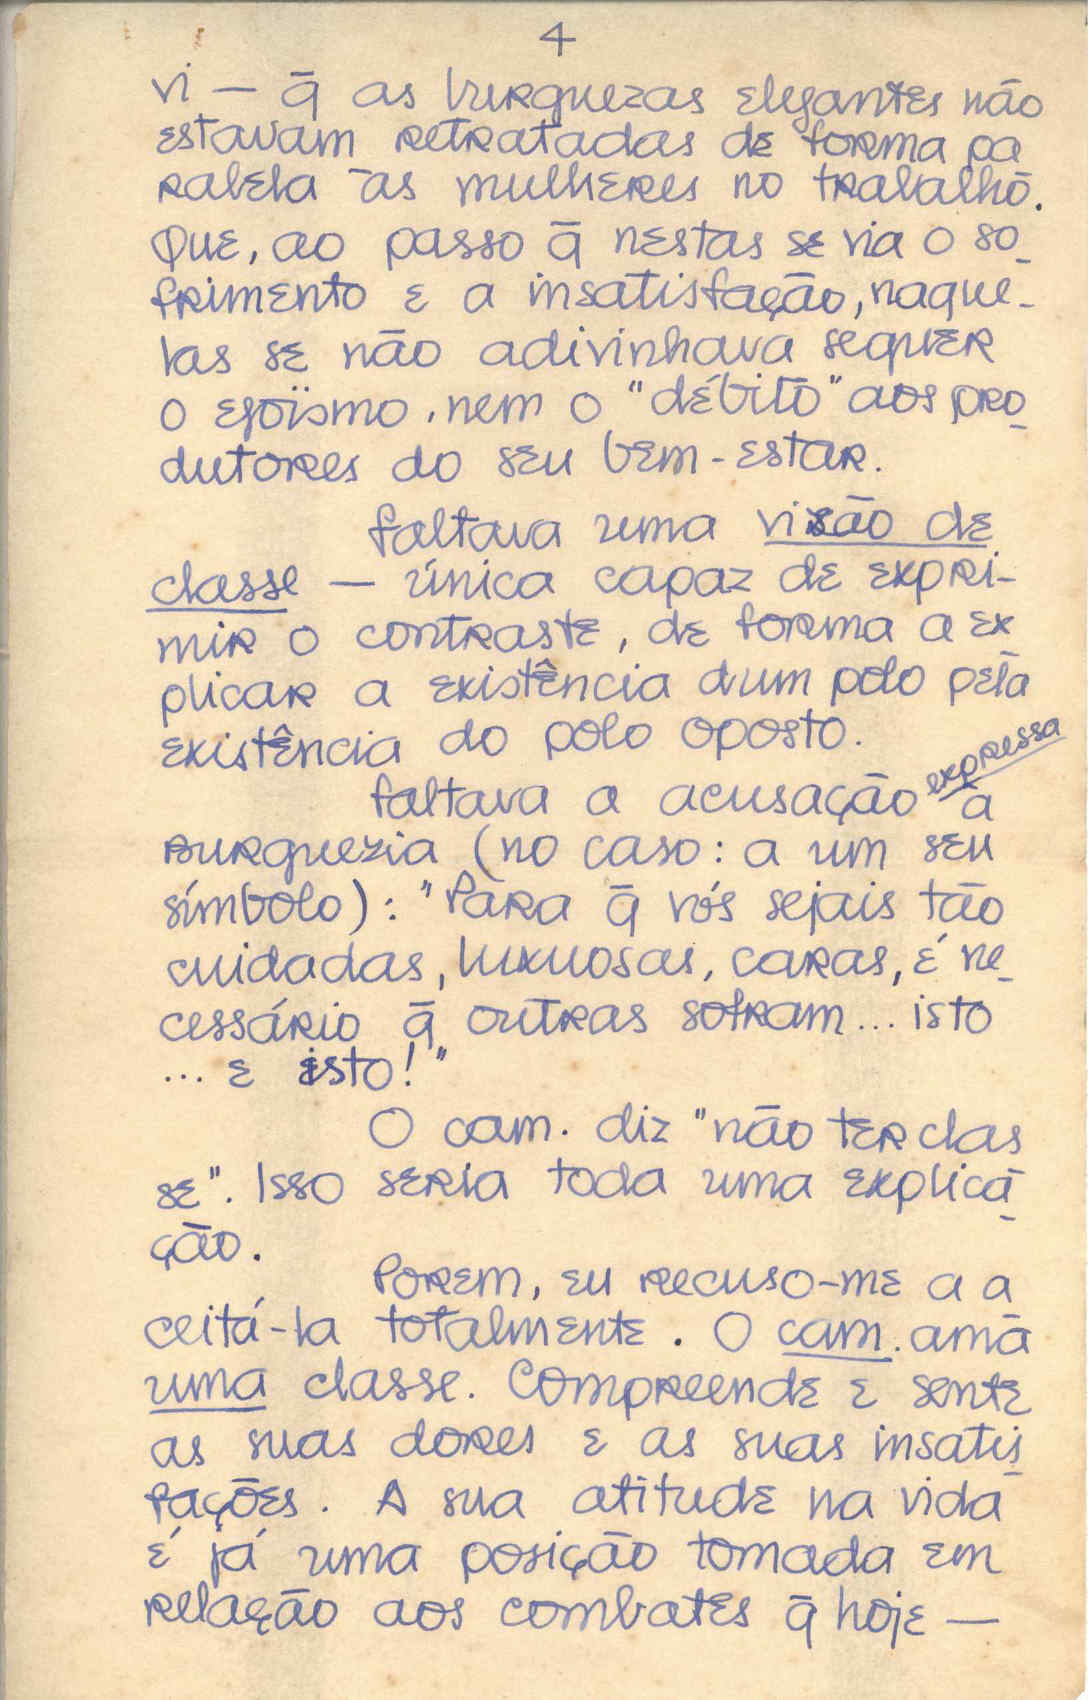 4
vi — q̄ as burguezas elegantes não
estavam retratadas de forma pa
ralela às mulheres no trabalho.
Que, ao passo q̄ nestas se via o so-
frimento e a insatisfação, naque-
las se não adivinhava sequer
o egoïsmo, nem o "débito" aos pro-
dutores do seu bem-estar.
Faltava uma visão de
classe — única capaz de expri-
mir o contraste, de forma a ex
plicar a existência dum polo pela
existência do polo oposto.
Faltava a acusação expressa à
Burguezia (no caso: a um seu
símbolo): "Para q̄ vós sejais tão
cuidadas, luxuosas, caras, é ne-
cessário q̄ outras sofram... isto
... e isto!"
O cam. diz "não ter clas
se". Isso seria toda uma explica-
ção.
Porém, eu recuso-me a a
ceitá-la totalmente. O cam. ama
uma classe. Compreende e sente
as suas dores e as suas insatis-
fações. A sua atitude na vida
é já uma posição tomada em
relação aos combates q̄ hoje —